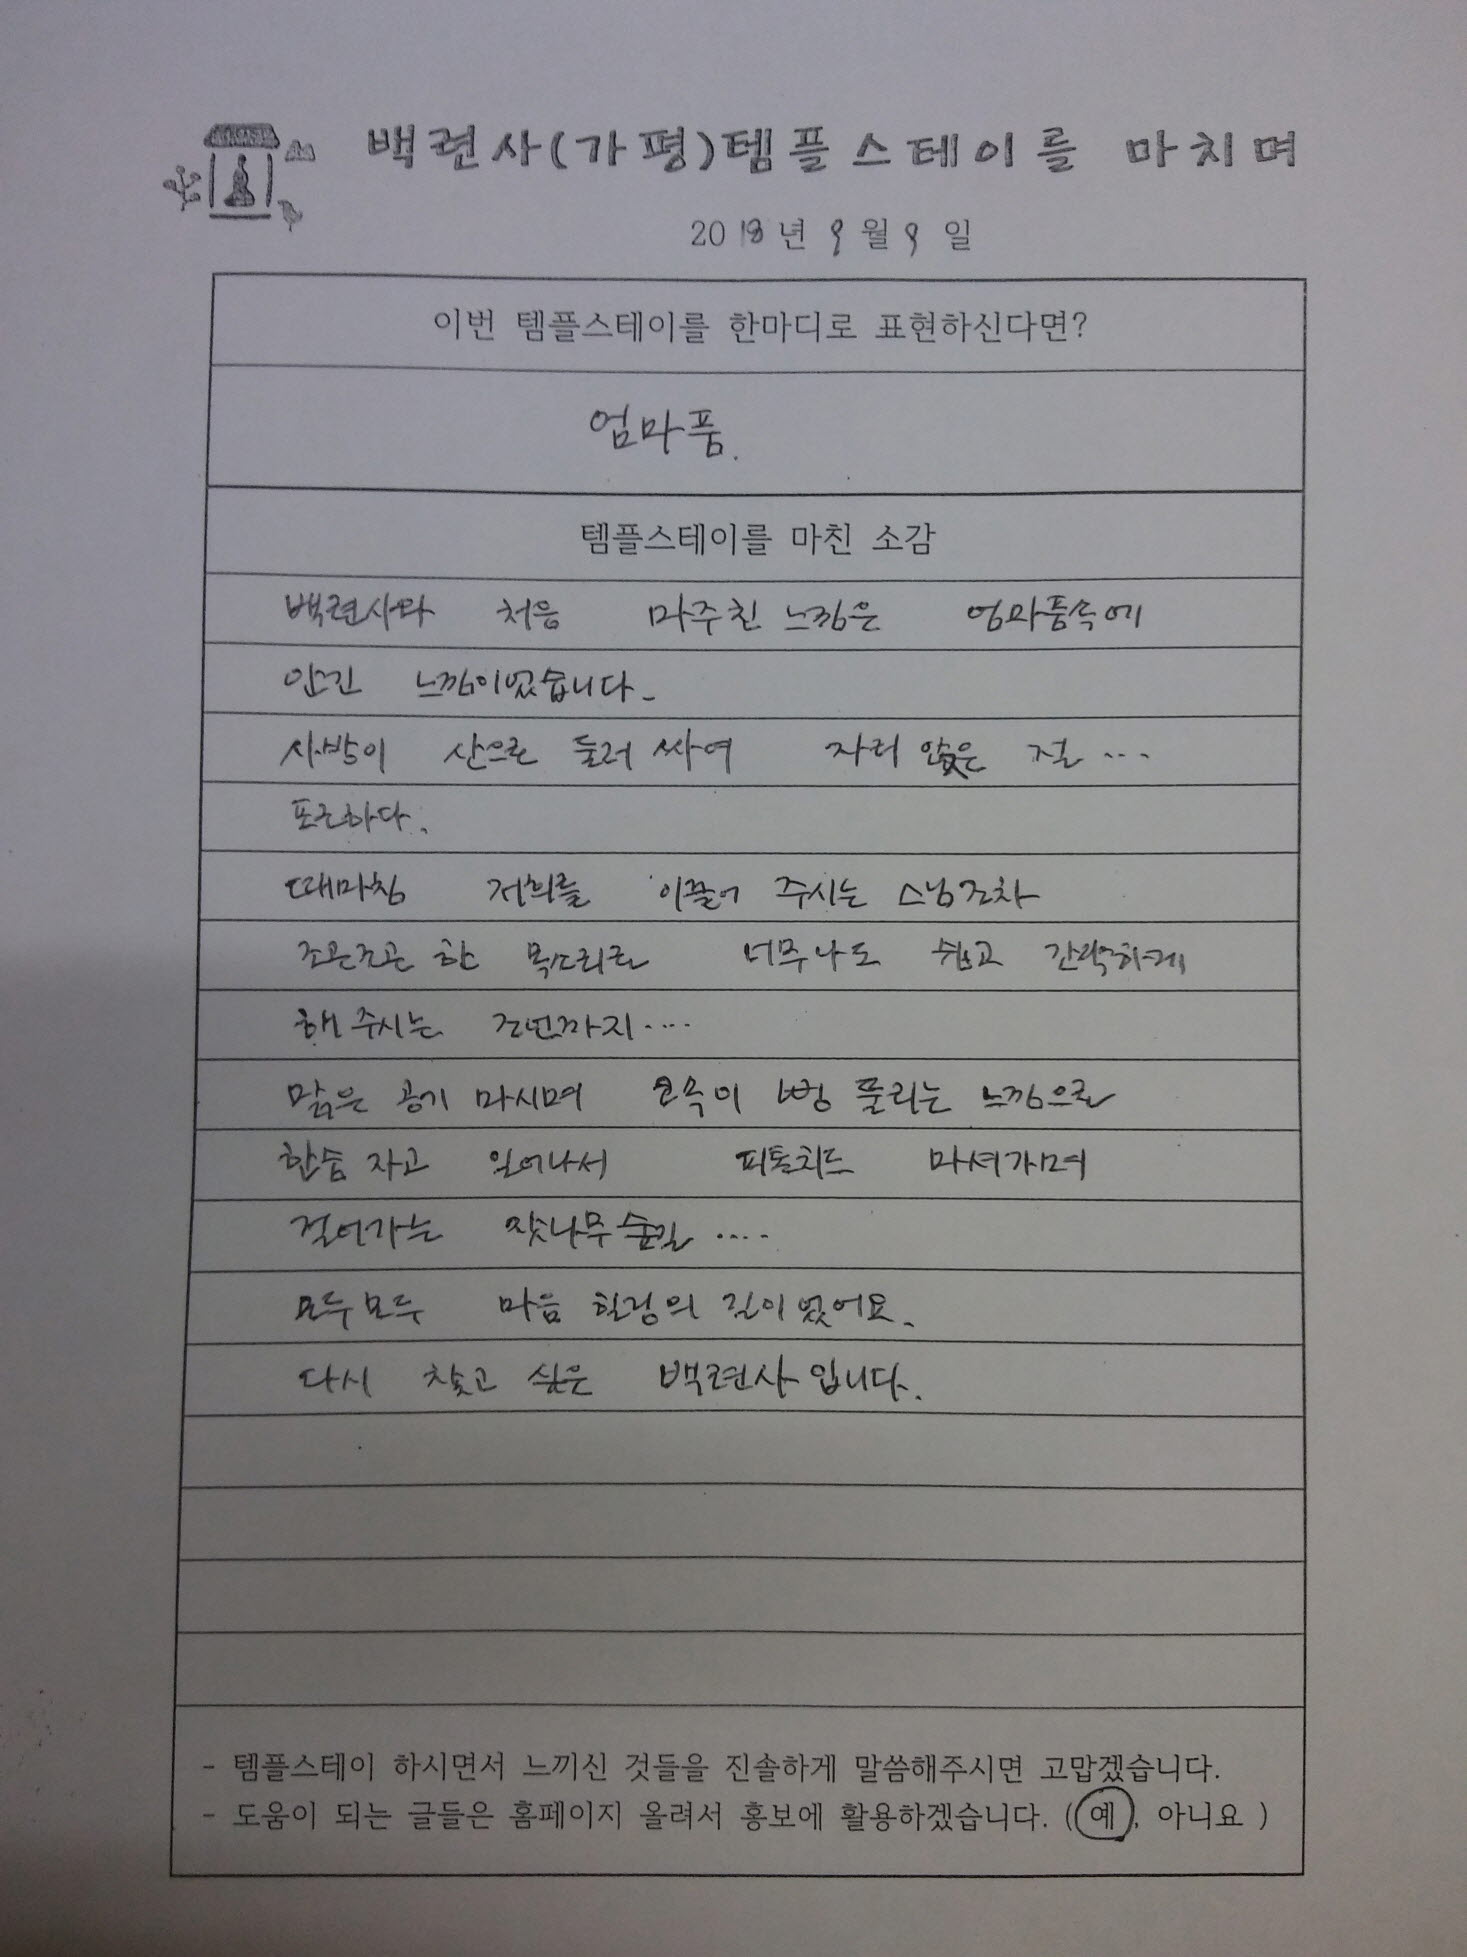 백련사(가평)템플스테이를 마치며
2018년 9월 9일
이번 템플스테이를 한마디로 표현하신다면?
엄마품.
템플스테이를 마친 소감
백련사와 처음 마주친 느낌은 엄마품속에
안긴 느낌이었습니다.
사방이 산으로 둘러 싸여 자리 앉은 절...
포근하다.
때마침 저희를 이끌어 주시는 스님조차
조곤조곤 한 목소리로 너무나도 쉽고 간략하게
해 주시는 장면까지....
맑은 공기 마시며 코속이 뻥 뚫리는 느낌으로
한숨 자고 일어나서 피톤치드 마셔가며
걸어가는 잣나무숲길....
모두모두 마음 힐링의 길이었어요.
다시 찾고 싶은 백련사입니다.
- 템플스테이 하시면서 느끼신 것들을 진솔하게 말씀해주시면 고맙겠습니다.
- 도움이 되는 글들은 홈페이지 올려서 홍보에 활용하겠습니다. (예, 아니요 )